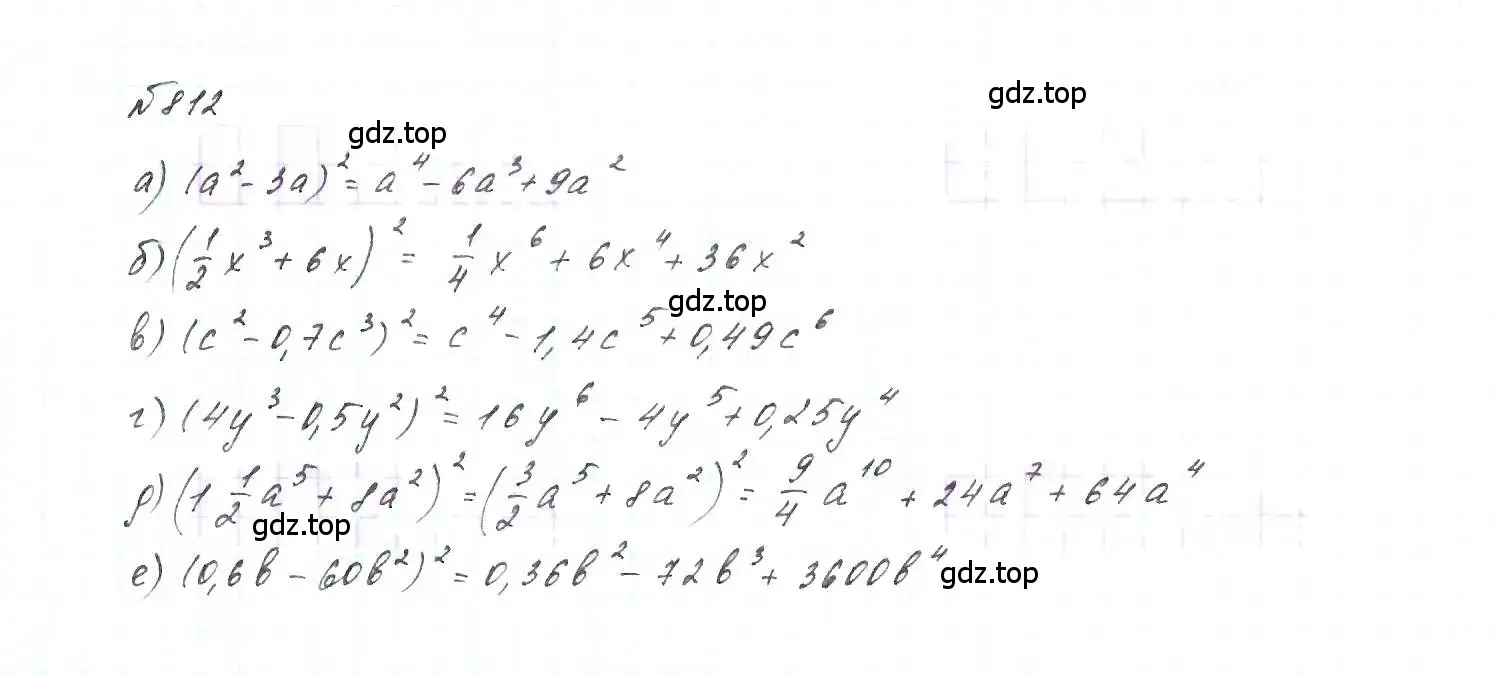 gdz.top
№812
gdz.top
а) (a² - 3a)² = a⁴ - 6a³ + 9a²
б) (1/2 x³ + 6x)² = 1/4 x⁶ + 6x⁴ + 36x²
gdz.top
в) (c² - 0,7c³)² = c⁴ - 1,4c⁵ + 0,49c⁶
г) (4y³ - 0,5y²)² = 16y⁶ - 4y⁵ + 0,25y⁴
д) (1 1/2 a⁵ + 8a²)² = (3/2 a⁵ + 8a²)² = 9/4 a¹⁰ + 24a⁷ + 64a⁴
gdz.top
е) (0,6b - 60b²)² = 0,36b² - 72b³ + 3600b⁴
gdz.top